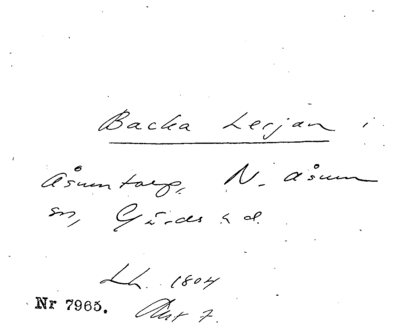 Backa Lerjan i
Åsumtorp, N. Åsum
sn, Gärds hd.
Lh. 1804
Nr 7965. Akt 7.